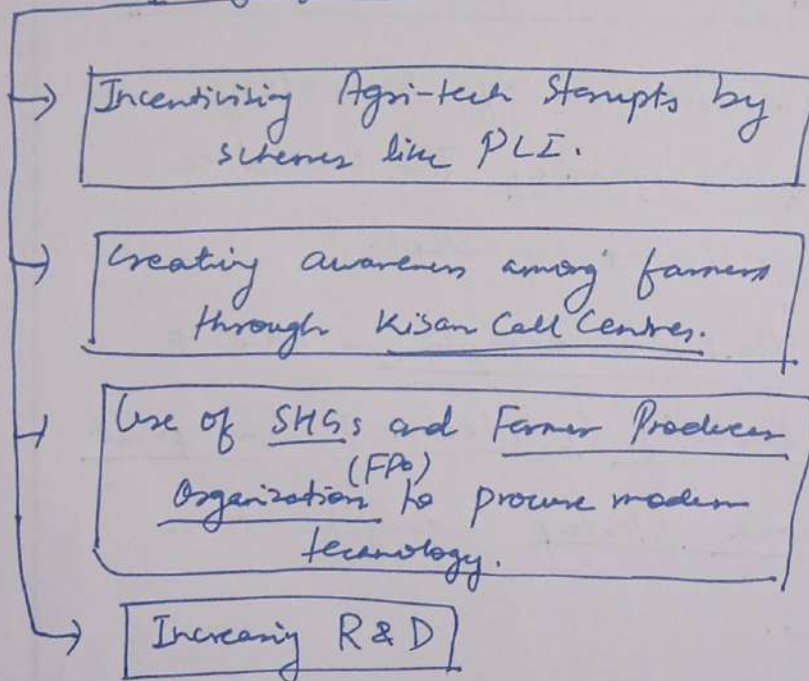 Incentivising Agri-tech Starupts by
schemes like PLI.
Creating awareness among farmers
through Kisan Call Centres.
Use of SHGs and Farmer Producer
(FPO)
Organization to procure modern
technology.
Increasing R & D